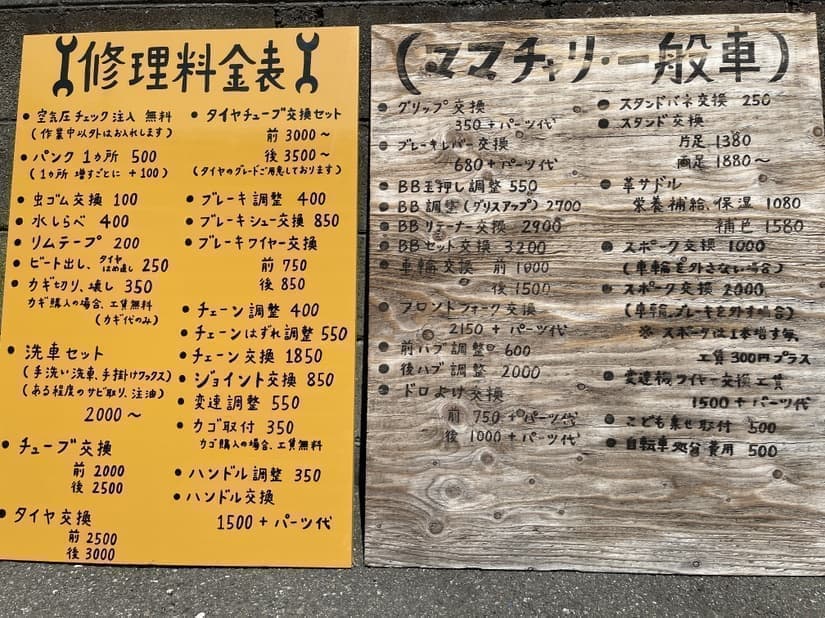 修理料金表
● 空気圧チェック注入 無料
(作業中以外はお入れします)
● パンク 1ヵ所 500
(1ヵ所 増すごとに +100)
● 虫ゴム交換 100
● 水しらべ 400
● リムテープ 200
● ビート出し、タイヤはめ直し 250
● カギ切り、壊し 350
カギ購入の場合、工賃無料
(カギ代のみ)
● 洗車セット
(手洗い洗車、手掛けワックス)
(ある程度のサビ取り、注油)
2000〜
● チューブ交換
前 2000
後 2500
● タイヤ交換
前 2500
後 3000
● タイヤチューブ交換セット
前 3000〜
後 3500〜
(タイヤのグレードご用意しております)
● ブレーキ調整 400
● ブレーキシュー交換 850
● ブレーキワイヤー交換
前 750
後 850
● チェーン調整 400
● チェーンはずれ調整 550
● チェーン交換 1850
● ジョイント交換 850
● 変速調整 550
● カゴ取付 350
カゴ購入の場合、工賃無料
● ハンドル調整 350
● ハンドル交換
1500+パーツ代
(ママチャリ・一般車)
● グリップ交換
350+パーツ代
● ブレーキレバー交換
680+パーツ代
● BB玉押し調整 550
● BB調整(グリスアップ) 2700
● BBリテーナー交換 2900
● BBセット交換 3200
● 車輪交換 前 1000
後 1500
● フロントフォーク交換
2150+パーツ代
● 前ハブ調整 600
● 後ハブ調整 2000
● ドロよけ交換
前 750+パーツ代
後 1000+パーツ代
● スタンドバネ交換 250
● スタンド交換
片足 1380
両足 1880〜
● 革サドル
栄養補給、保湿 1080
補色 1580
● スポーク交換 1000
(車輪を外さない場合)
● スポーク交換 2000
(車輪、ブレーキを外す場合)
※ スポークは1本増す毎
工賃300円プラス
● 変速機ワイヤー交換工賃
1500+パーツ代
● こども乗せ取付 500
● 自転車処分費用 500